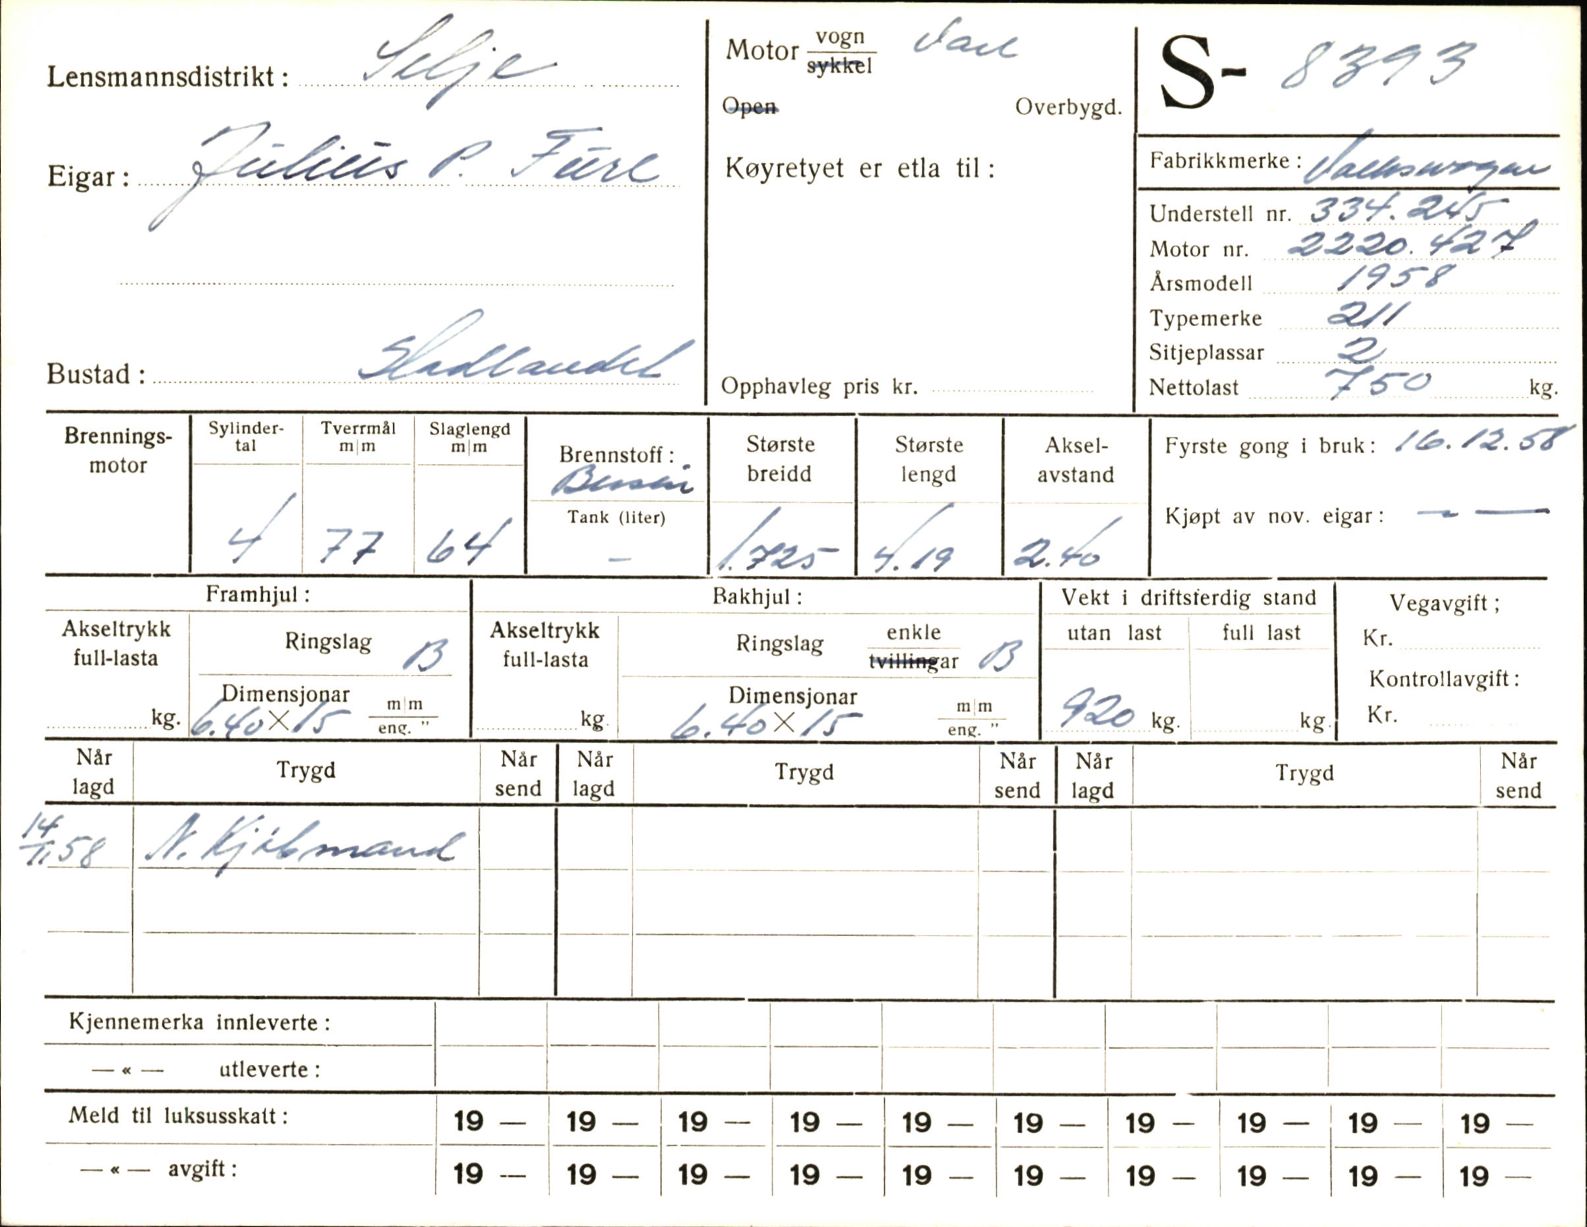 Lensmannsdistrikt: Selje
Eigar: Julius P. Fure
Bustad: Stadlandet
Motor vogn
sykkel
Open Overbygd.
Køyretyet er etla til:
Opphavleg pris kr.
S- 8393
Fabrikkmerke: Volkswagen
Understell nr. 334.245
Motor nr. 2220.427
Årsmodell 1958
Typemerke 211
Sitjeplassar 2
Nettolast 750 kg.
Brennings-
motor
Sylinder-
tal
4
Tverrmål
m|m
77
Slaglengd
m|m
64
Brennstoff:
Bensin
Tank (liter)
—
Største
breidd
1.725
Største
lengd
4.19
Aksel-
avstand
2.40
Fyrste gong i bruk: 16.12.58
Kjøpt av nov. eigar: — " —
Framhjul:
Akseltrykk
full-lasta
kg.
Ringslag B
Dimensjonar
6.40 × 15 m|m
eng. "
Bakhjul:
Akseltrykk
full-lasta
kg.
Ringslag enkle
tvillingar B
Dimensjonar
6.40 × 15 m|m
eng. "
Vekt i driftsferdig stand
utan last full last
920 kg. kg.
Vegavgift;
Kr.
Kontrollavgift:
Kr.
Når
lagd Trygd Når
send Når
lagd Trygd Når
send Når
lagd Trygd Når
send
14/11 58 N. Kjøbmand
Kjennemerka innleverte:
— « — utleverte:
Meld til luksusskatt: 19 — 19 — 19 — 19 — 19 — 19 — 19 — 19 — 19 — 19 —
— « — avgift: 19 — 19 — 19 — 19 — 19 — 19 — 19 — 19 — 19 — 19 —